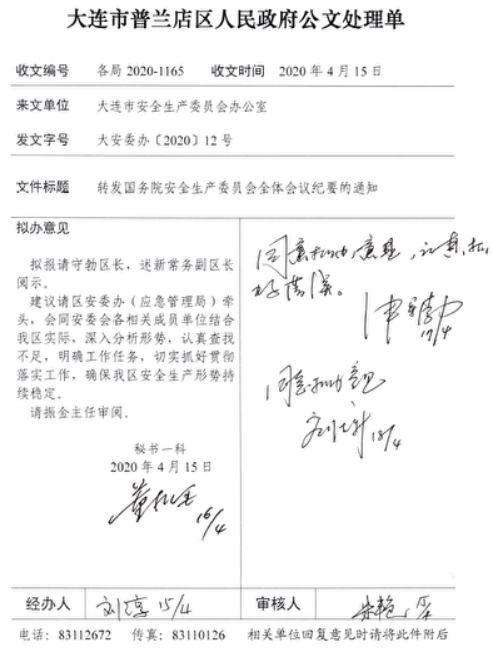 大连市普兰店区人民政府公文处理单
收文编号 各局 2020-1165 收文时间 2020 年 4 月 15 日
来文单位 大连市安全生产委员会办公室
发文字号 大安委办〔2020〕12 号
文件标题 转发国务院安全生产委员会全体会议纪要的通知
拟办意见
拟报请守勃区长，述新常务副区长
阅示。
建议请区安委办（应急管理局）牵
头，会同安委会各相关成员单位结合
我区实际，深入分析形势，认真查找
不足，明确工作任务，切实抓好贯彻
落实工作，确保我区安全生产形势持
续稳定。
请振金主任审阅。
秘书一科
2020 年 4 月 15 日
16/4
同意拟办意见，认真抓
好落实。
17/4
同意拟办意见
18/4
经办人 刘淳 15/4 审核人
电话：83112672 传真：83110126 相关单位回复意见时请将此件附后